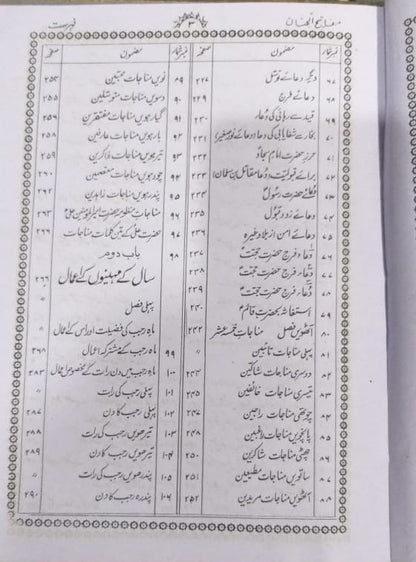 مفاتیح الجنان
۳
فہرست
نمبرشمار مضمون صفحہ
۶۷ دیگر دعائے توسل ۲۲۴
۶۸ دعائے فرج ۲۲۹
۶۹ قید سے رہائی کی دعا ۲۳۰
۷۰ بخار سے شفایابی کی دعا (دعائے نور صغیر) ۲۳۱
۷۱ حرز حضرت امام سجادؑ ۲۳۲
۷۲ برائے قبولیت دعا (دعا مقاتل بن سلمان) ۲۳۳
۷۳ دعائے حضرت رسولؐ ۲۳۴
۷۴ دعائے زود قبول ۲۳۵
۷۵ دعائے امن از بلا وغیرہ ۲۳۶
۷۶ دعاء فرج حضرت حجتؑ ۲۳۷
۷۷ دعاء فرج حضرت حجتؑ ۲۳۸
۷۸ دعاء فرج حضرت حجتؑ ۲۳۹
۷۹ استغاثہ بحضرت قائمؑ ۲۴۰
۸۰ آٹھویں فصل مناجات خمسہ عشر ۲۴۲
۸۱ پہلی مناجات تائبین 〃
۸۲ دوسری مناجات شاکین ۲۴۴
۸۳ تیسری مناجات خائفین ۲۴۵
۸۴ چوتھی مناجات راجین ۲۴۷
۸۵ پانچویں مناجات راغبین ۲۴۸
۸۶ چھٹی مناجات شاکرین ۲۵۰
۸۷ ساتویں مناجات مطیعین ۲۵۱
۸۸ آٹھویں مناجات مریدین ۲۵۲
نمبرشمار مضمون صفحہ
۸۹ نویں مناجات محبین ۲۵۴
۹۰ دسویں مناجات متوسلین ۲۵۵
۹۱ گیارہویں مناجات مفتقرین ۲۵۶
۹۲ بارہویں مناجات عارفین ۲۵۸
۹۳ تیرھویں مناجات ذاکرین ۲۵۹
۹۴ چودہویں مناجات معتصمین ۲۶۰
۹۵ پندرہویں مناجات زاہدین ۲۶۲
۹۶ مناجات منظومہ حضرت امیرالمومنین علیؑ ۲۶۳
۹۷ حضرت علیؑ کے تین کلمات مناجات
۹۸ باب دوم
سال کے مہینوں کے اعمال ۲۶۶
پہلی فصل
ماہ رجب کی فضیلت اور اس کے اعمال 〃
۹۹ ماہ رجب کے مشترکہ اعمال ۲۶۸
۱۰۰ ماہ رجب میں دن رات کے مخصوص اعمال ۲۸۳
۱۰۱ پہلی رجب کی رات 〃
۱۰۲ پہلی رجب کا دن ۲۸۷
۱۰۳ تیرھویں رجب کی رات ۲۸۸
۱۰۴ تیرھویں رجب کا دن ۲۸۹
۱۰۵ پندرھویں رجب کی رات 〃
۱۰۶ پندرہ رجب کا دن ۲۹۰